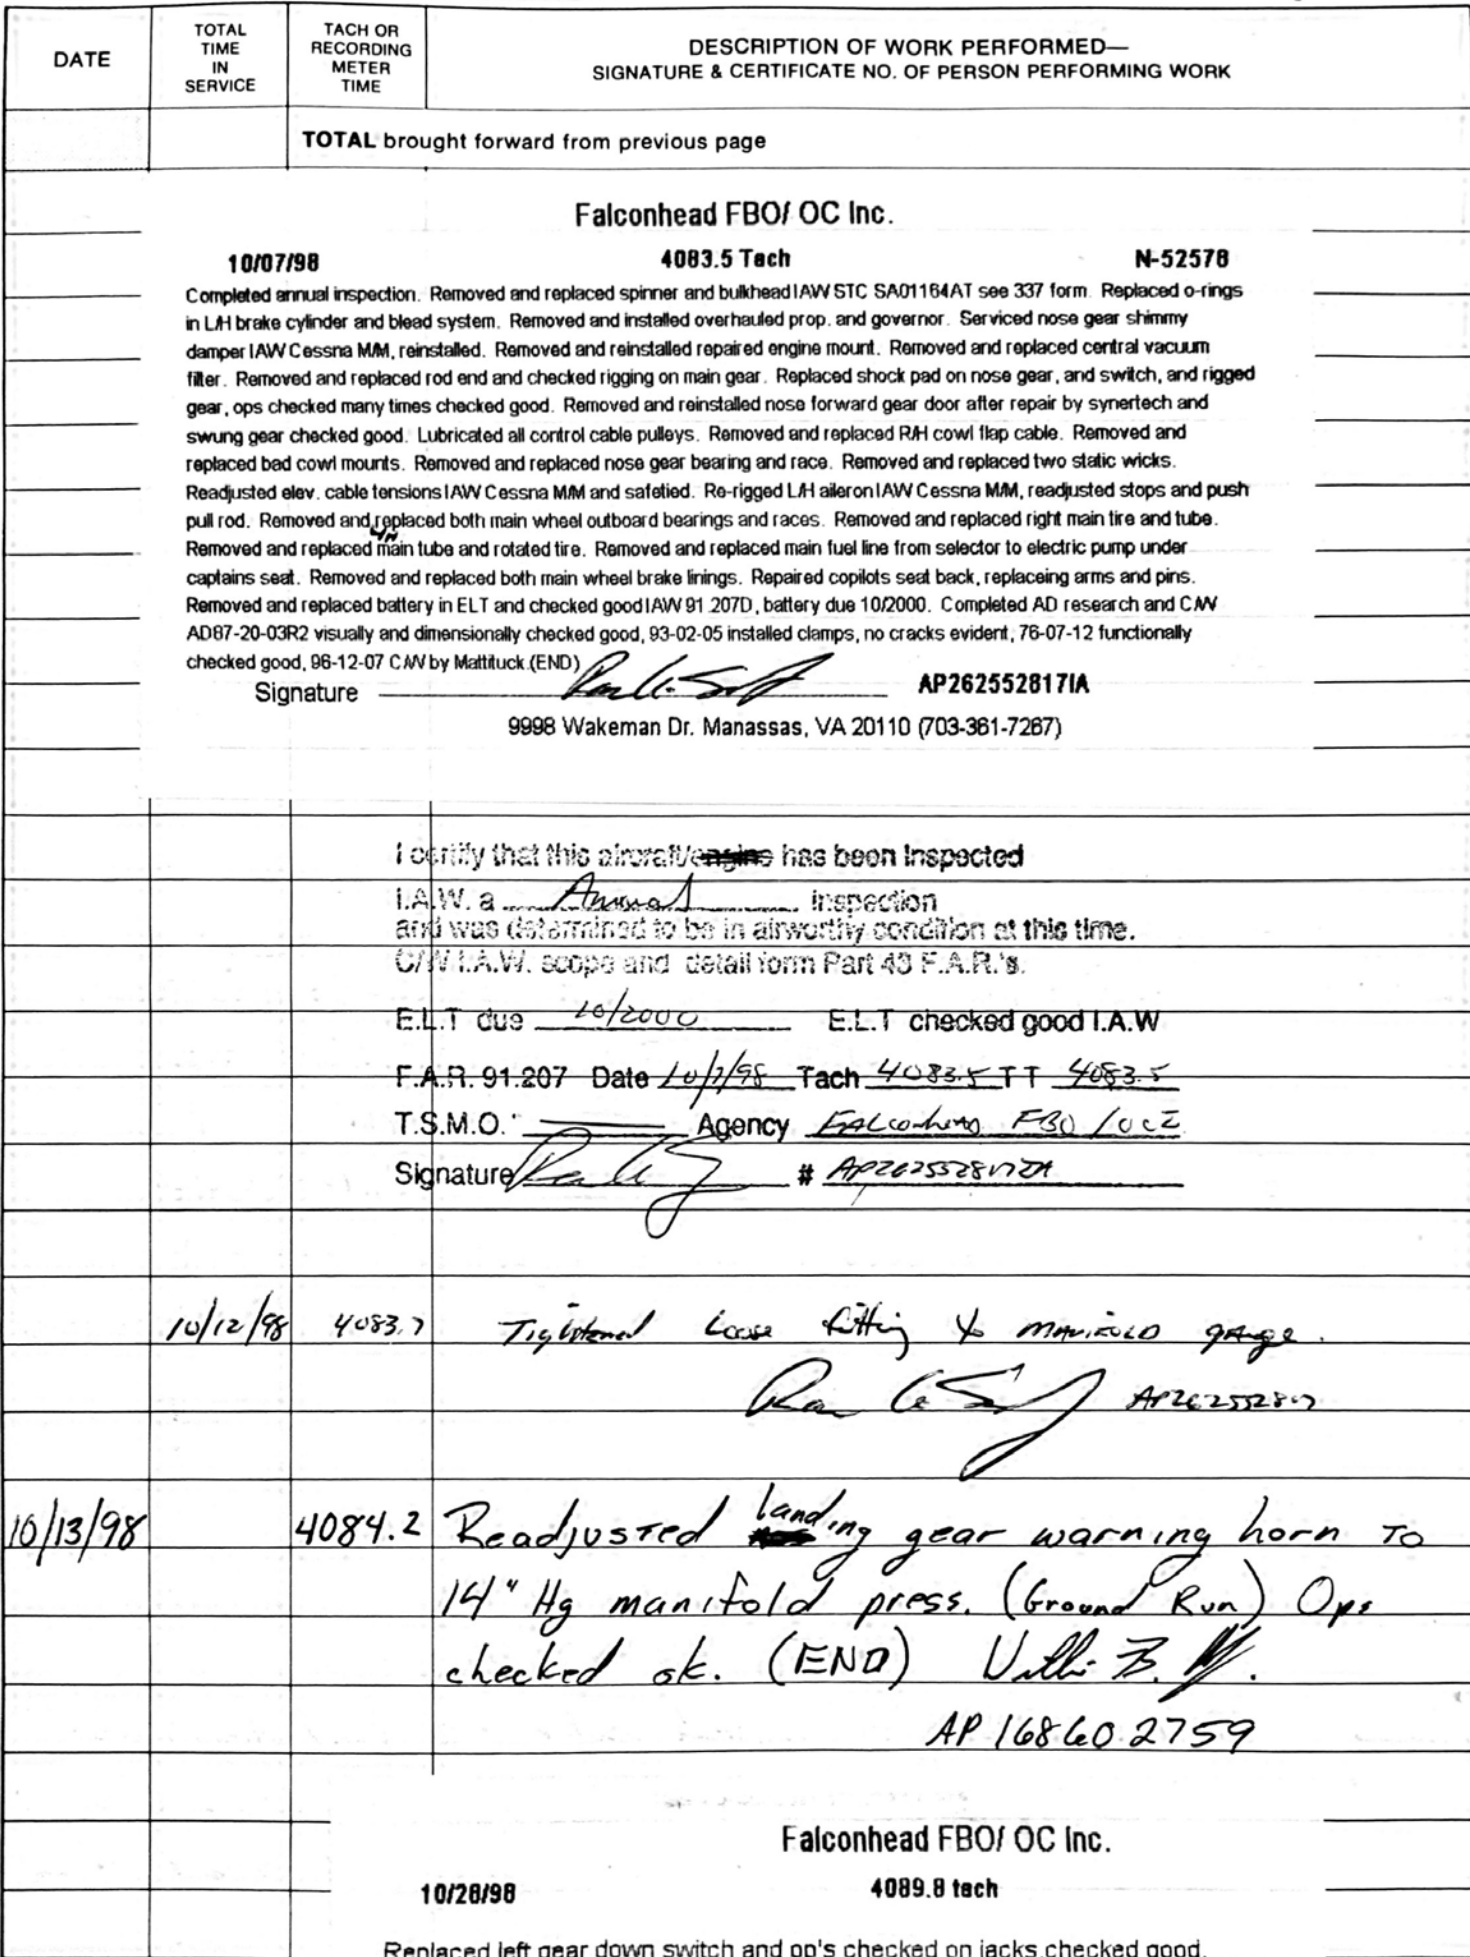 DATE
TOTAL TIME IN SERVICE
TACH OR RECORDING METER TIME
DESCRIPTION OF WORK PERFORMED—
SIGNATURE & CERTIFICATE NO. OF PERSON PERFORMING WORK
TOTAL brought forward from previous page
Falconhead FBO/ OC Inc.
10/07/98 4083.5 Tach N-52578
Completed annual inspection. Removed and replaced spinner and bulkhead IAW STC SA01164AT see 337 form. Replaced o-rings
in L/H brake cylinder and blead system. Removed and installed overhauled prop. and governor. Serviced nose gear shimmy
damper IAW Cessna M/M, reinstalled. Removed and reinstalled repaired engine mount. Removed and replaced central vacuum
filter. Removed and replaced rod end and checked rigging on main gear. Replaced shock pad on nose gear, and switch, and rigged
gear, ops checked many times checked good. Removed and reinstalled nose forward gear door after repair by synertech and
swung gear checked good. Lubricated all control cable pulleys. Removed and replaced R/H cowl flap cable. Removed and
replaced bad cowl mounts. Removed and replaced nose gear bearing and race. Removed and replaced two static wicks.
Readjusted elev. cable tensions IAW Cessna M/M and safetied. Re-rigged L/H aileron IAW Cessna M/M, readjusted stops and push
pull rod. Removed and replaced both main wheel outboard bearings and races. Removed and replaced right main tire and tube.
Removed and replaced main tube and rotated tire. Removed and replaced main fuel line from selector to electric pump under
captains seat. Removed and replaced both main wheel brake linings. Repaired copilots seat back, replaceing arms and pins.
Removed and replaced battery in ELT and checked good IAW 91.207D, battery due 10/2000. Completed AD research and C/W
AD87-20-03R2 visually and dimensionally checked good, 93-02-05 installed clamps, no cracks evident, 76-07-12 functionally
checked good, 96-12-07 C/W by Mattituck.(END)
Signature AP262552817IA
9998 Wakeman Dr. Manassas, VA 20110 (703-361-7267)
I certify that this aircraft/engine has been inspected
I.A.W. a Annual inspection
and was determined to be in airworthy condition at this time.
C/W I.A.W. scope and detail form Part 43 F.A.R.'s.
E.L.T due 10/2000 E.L.T checked good I.A.W
F.A.R. 91.207 Date 10/7/98 Tach 4083.5 TT 4083.5
T.S.M.O. Agency Falconhead FBO/OCI
Signature # AP262552817IA
10/12/98 4083.7 Tightened loose fitting to manifold gauge.
AP262552817
10/13/98 4084.2 Readjusted landing gear warning horn to
14" Hg manifold press. (Ground Run) Ops
checked ok. (END)
AP 168602759
Falconhead FBO/ OC Inc.
10/28/98 4089.8 tach
Replaced left gear down switch and op's checked on jacks,checked good.